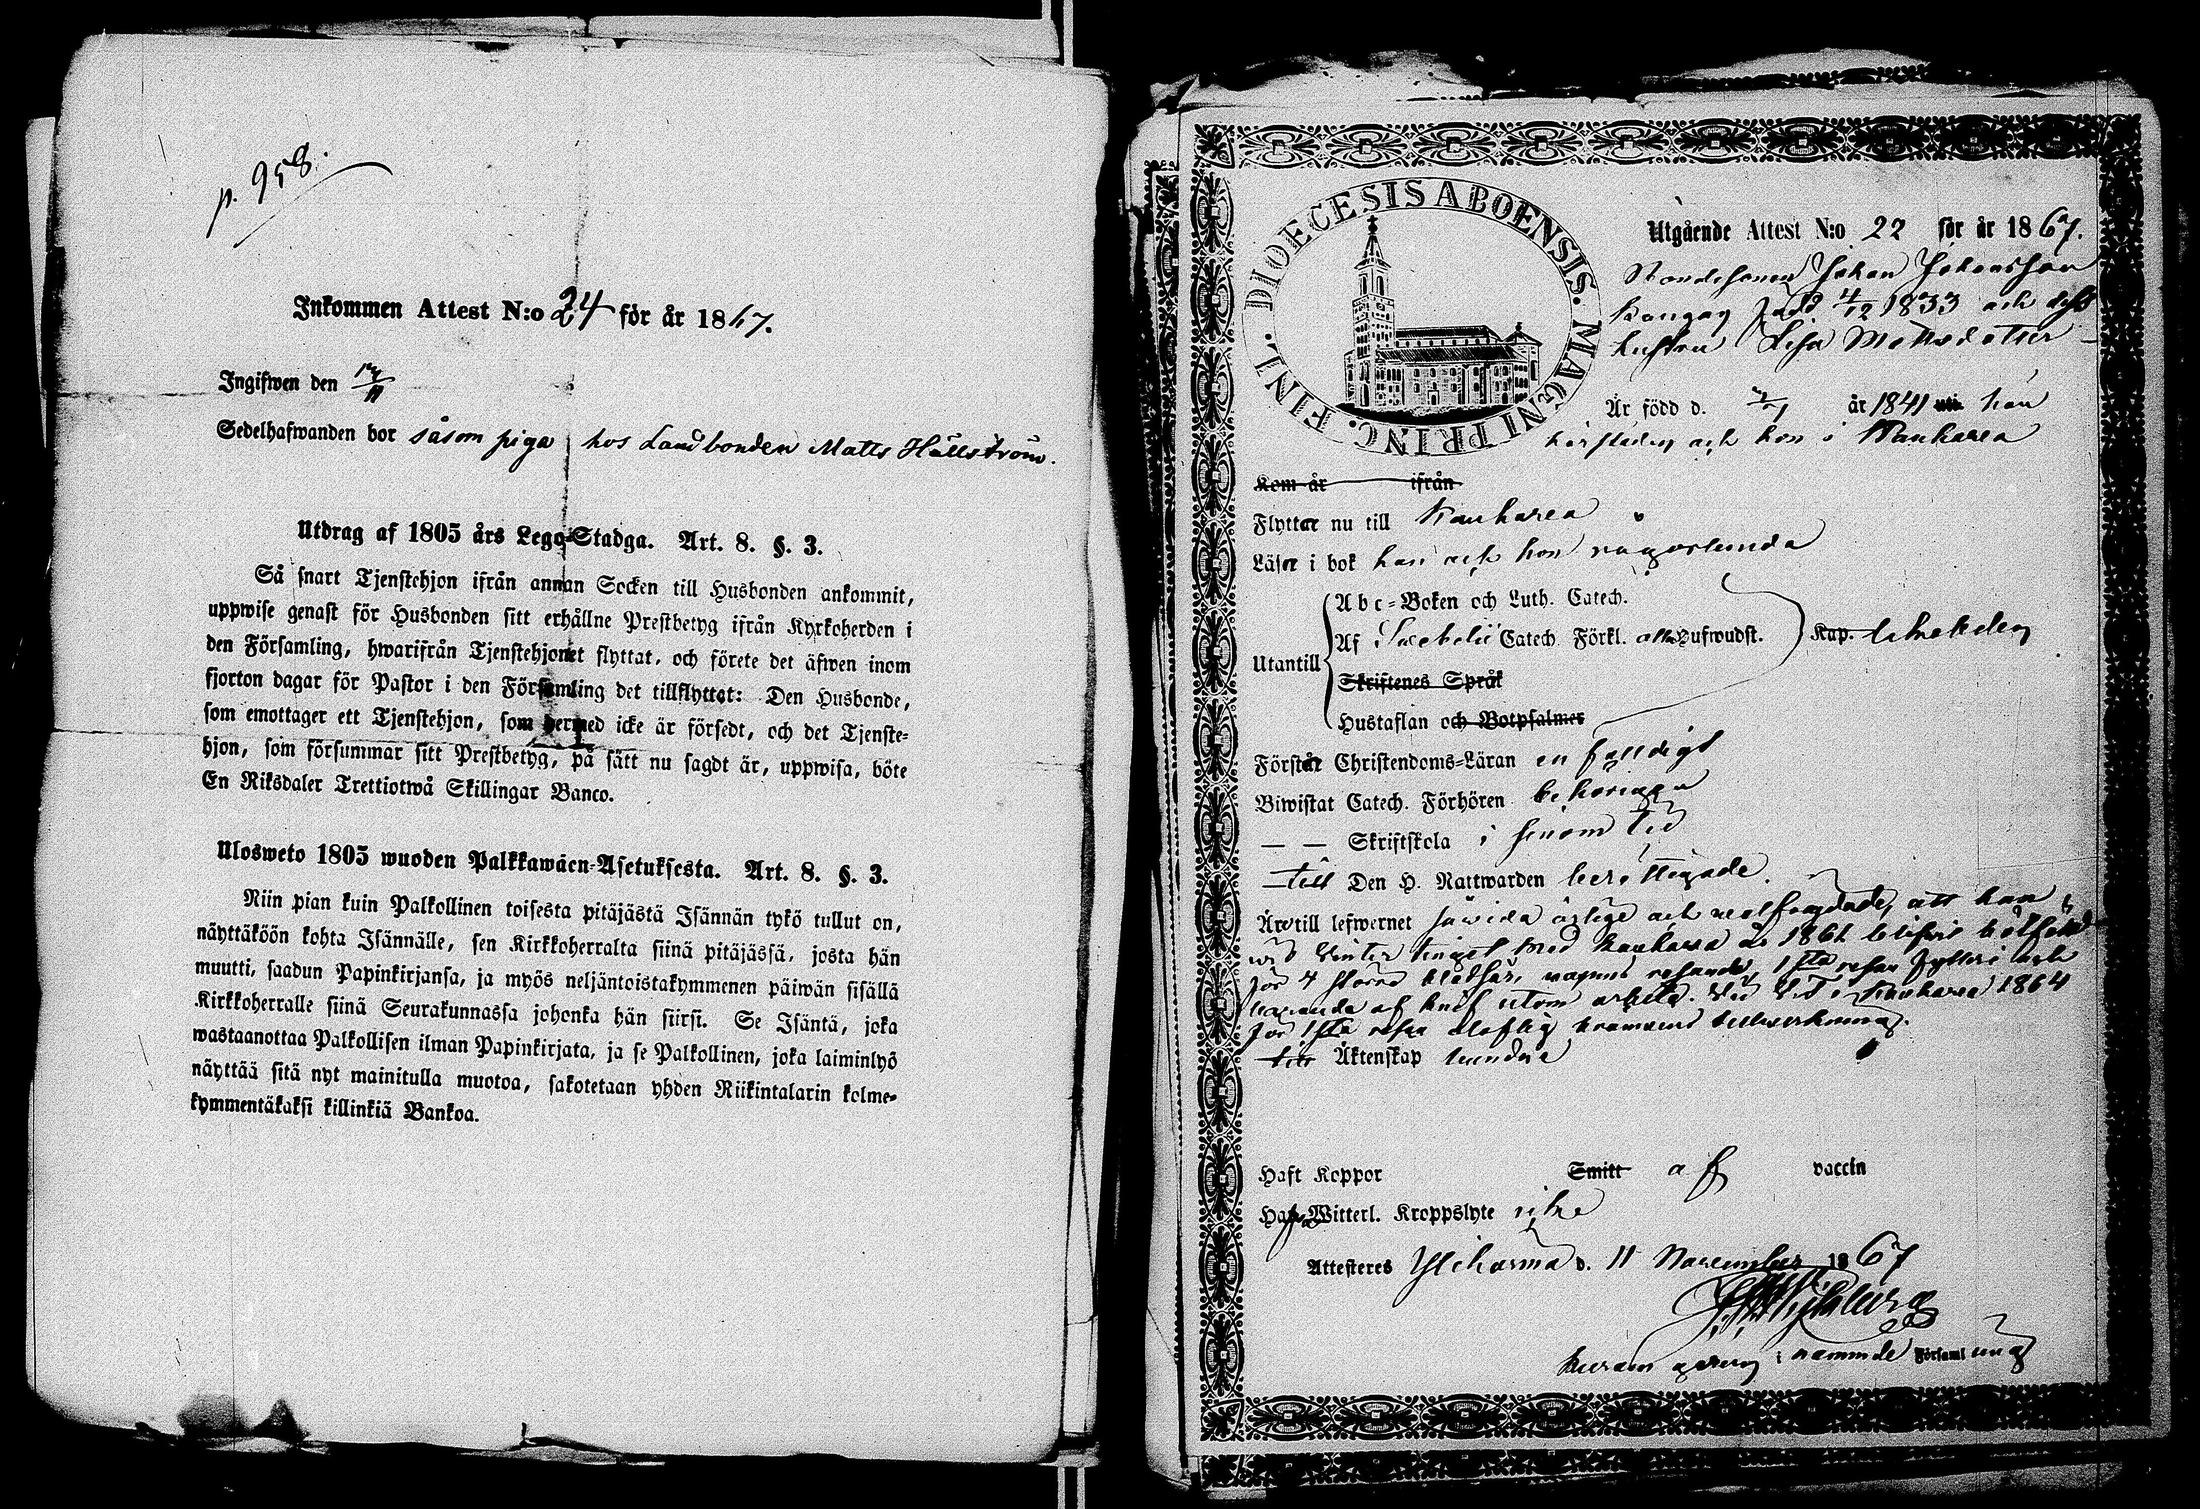 p. 958.
Inkommen Attest N:o 24 för år 1867.
Ingifwen den 17/11
Sedelhafwanden bor såsom piga hos Landbonden Matts Hällström.
Utdrag af 1805 års Lego-Stadga. Art. 8. §. 3.
Så snart Tjenstehjon ifrån annan Socken till Husbonden ankommit,
uppwise genast för Husbonden sitt erhållne Prestbetyg ifrån Kyrkoherden i
den Församling, hwarifrån Tjenstehjonet flyttat, och förete det äfwen inom
fjorton dagar för Pastor i den Församling det tillflyttat: Den Husbonde,
som emottager ett Tjenstehjon, som hermed icke är försedt, och det Tjenste-
hjon, som försummar sitt Prestbetyg, på sätt nu sagdt är, uppwisa, böte
En Riksdaler Trettiotwå Skillingar Banco.
Ulosweto 1805 wuoden Palkkawäen-Asetuksesta. Art. 8. §. 3.
Niin pian kuin Palkollinen toisesta pitäjästä Isännän tykö tullut on,
näyttäköön kohta Isännälle, sen Kirkkoherralta siinä pitäjässä, josta hän
muutti, saadun Papinkirjansa, ja myös neljäntoistakymmenen päiwän sisällä
Kirkkoherralle siinä Seurakunnassa johonka hän siirsi. Se Isäntä, joka
wastaanottaa Palkollisen ilman Papinkirjata, ja se Palkollinen, joka laiminlyö
näyttää sitä nyt mainitulla muotoa, sakotetaan yhden Riikintalarin kolme-
kymmentäkaksi killinkiä Bankoa.
DIOECESIS ABOENSIS. MAGNI PRINC. FINL.
Utgående Attest N:o 22 för år 1867.
Bondesonen Johan Johansson
Kangas född 4/12 1833 och dess
hustru Lisa Mattsdotter
Är född d. år 1841 uti han
härstädes och hon i Kauhava
Kom år ifrån
Flyttar nu till Kauhava
Läser i bok han och hon någorlunda
Utantill
Abc-Boken och Luth. Catech.
Af Svebelii Catech. Förkl. Hufwudst. Kap.
Skriftenes Språk
Hustaflan och Botpsalmer
Förstår Christendoms-Läran enfaldigt
Biwistat Catech. Förhören behörigen
— — Skriftskola i sinom tid
till Den H. Nattwarden berättigade.
Är till lefwernet ärlige och att han
wid Vinter tinget med Kauhava år 1861 blifwit bötfäld
för 4 större 1sta resan fylleri och
af knif utom arbete. 1864
för 1sta resa olaflig
till Äktenskap bundne
Haft Koppor Smitt af vaccin
Haft Witterl. Kroppslyte icke
Attesteres Ylihärmä d. 11 November 1867
i nämnde Församling